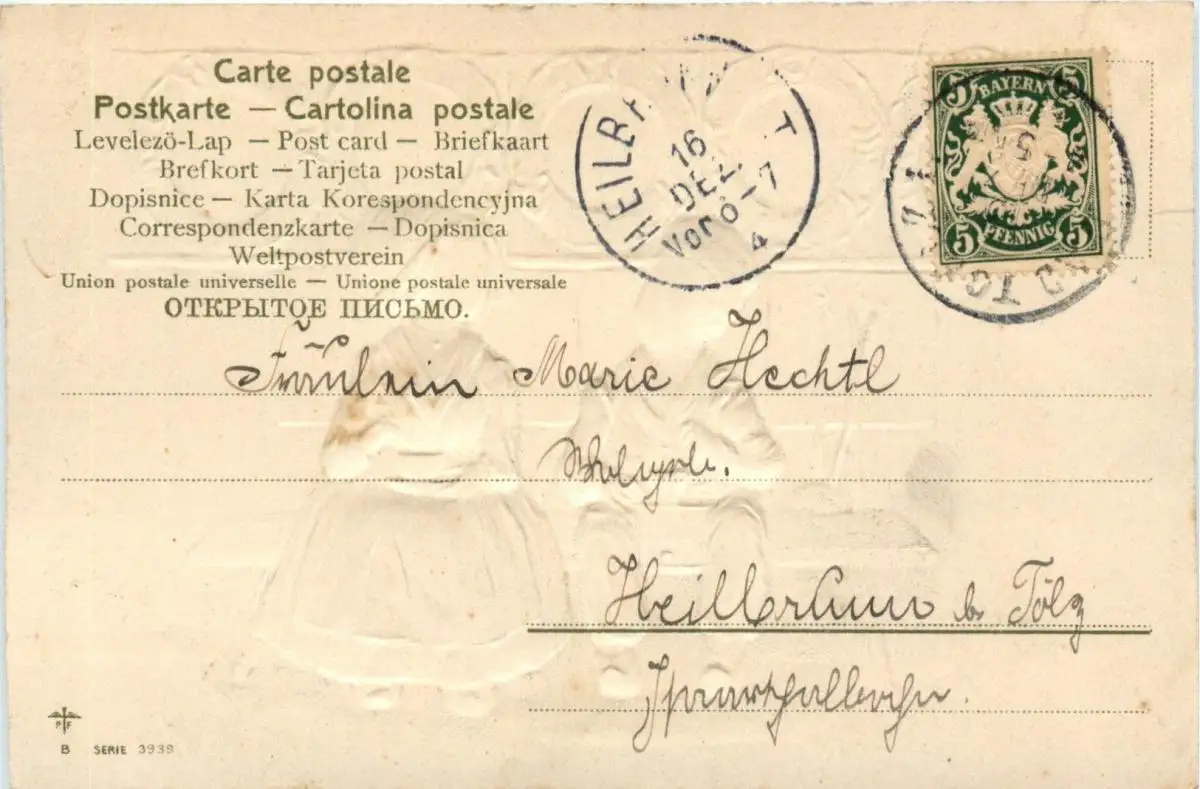 Carte postale
Postkarte — Cartolina postale
Levelezö-Lap — Post card — Briefkaart
Brefkort — Tarjeta postal
Dopisnice — Karta Korespondencyjna
Correspondenzkarte — Dopisnica
Weltpostverein
Union postale universelle — Unione postale universale
ОТКРЫТОЕ ПИСЬМО.
16
DEZ.
Vor 6-7
4
5 BAYERN 5
5 PFENNIG 5
Fräulein Marie Hechtl
Heilbrunn b. Tölz
P F
B SERIE 3939